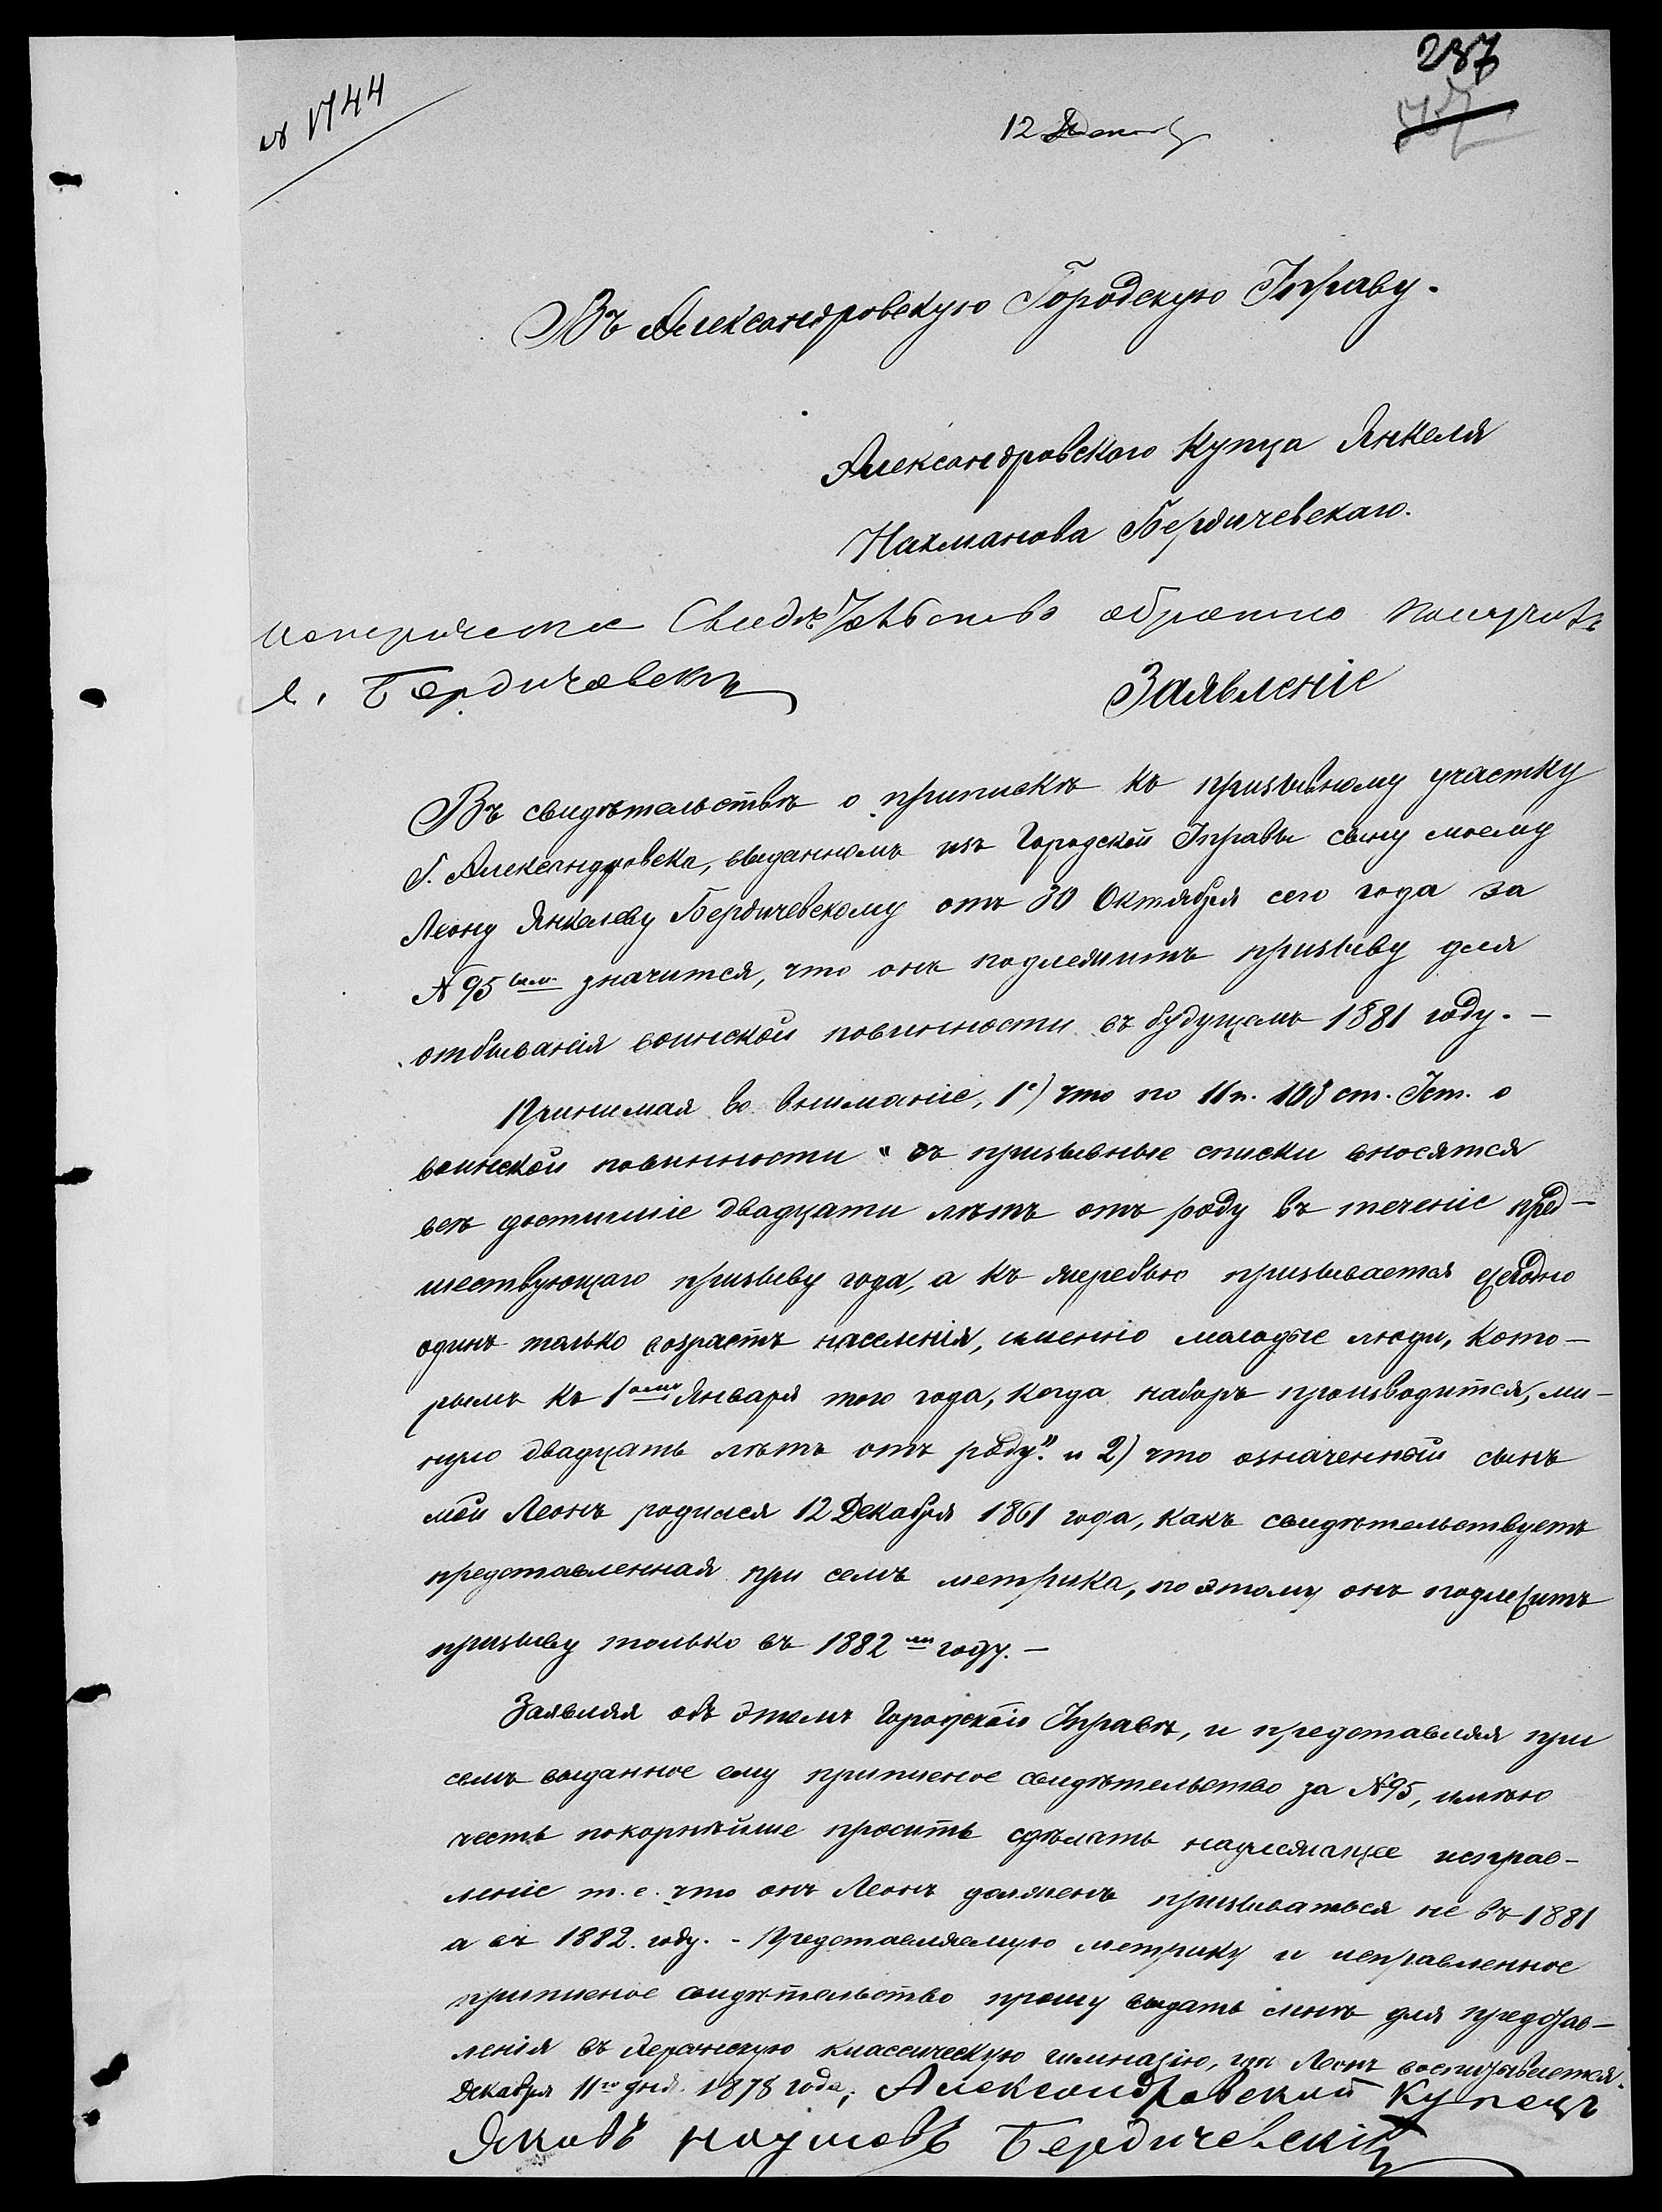 237
№ 1744
12 Декаб
Въ Александровскую Городскую Управу.
Александровскаго Купца Янкеля
Нахманова Бердичевскаго.
Свидѣтельство обратно получилъ
Я. Бердичевскій
Заявленіе
Въ свидѣтельствѣ о припискѣ къ призывному участку
г. Александровска, выданномъ изъ Городской Управы сыну моему
Леону Янкелеву Бердичевскому отъ 30 Октября сего года за
№ 95 значится, что онъ подлежитъ призыву для
отбыванія воинской повинности въ будущемъ 1881 году. —
Принимая во вниманіе, 1е) что по 11 п. 103 ст. Уст. о
воинской повинности „въ призывные списки вносятся
всѣ достигшіе двадцати лѣтъ отъ роду въ теченіе пред-
шествующаго призыву года, а къ жеребью призывается ежегодно
одинъ только возрастъ населенія, именно молодые люди, кото-
рымъ къ 1ому Января того года, когда наборъ производится, ми-
нуло двадцать лѣтъ отъ роду." и 2) что означенный сынъ
мой Леонъ родился 12 Декабря 1861 года, какъ свидѣтельствуетъ
представленная при семъ метрика, по этому онъ подлежитъ
призыву только въ 1882 мъ году. —
Заявляя объ этомъ Городской Управѣ, и представляя при
семъ выданное ему приписное свидѣтельство за № 95, имѣю
честь покорнѣйше просить сдѣлать надлежащее исправ-
леніе т. е. что онъ Леонъ долженъ призываться не въ 1881
а въ 1882. году. - Представляемую метрику и исправленное
приписное свидѣтельство прошу выдать мнѣ для представ-
ленія въ классическую гимназію, гдѣ Леонъ воспитывается.
Декабря 11го дня 1878 года; Александровский Купецъ
Яковъ Наумовъ Бердичевскій